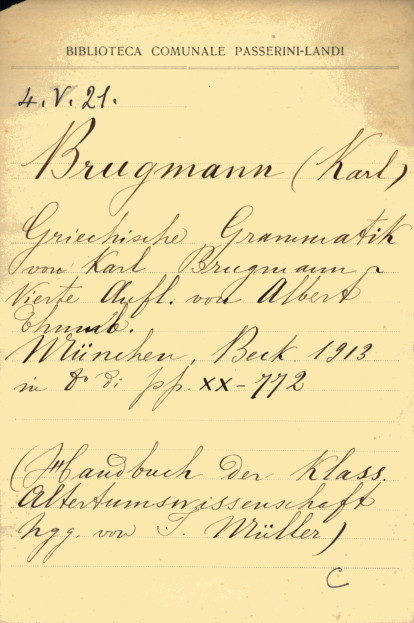 BIBLIOTECA COMUNALE PASSERINI-LANDI
4.V.21.
Brugmann (Karl)
Griechische Grammatik
von Karl Brugmann -
Vierte Aufl. von Albert
Thumb.
München, Beck. 1913
in 8° di pp. XX-772
(Handbuch der Klass.
Altertumswissenschaft
hgg. von I. Müller)
C